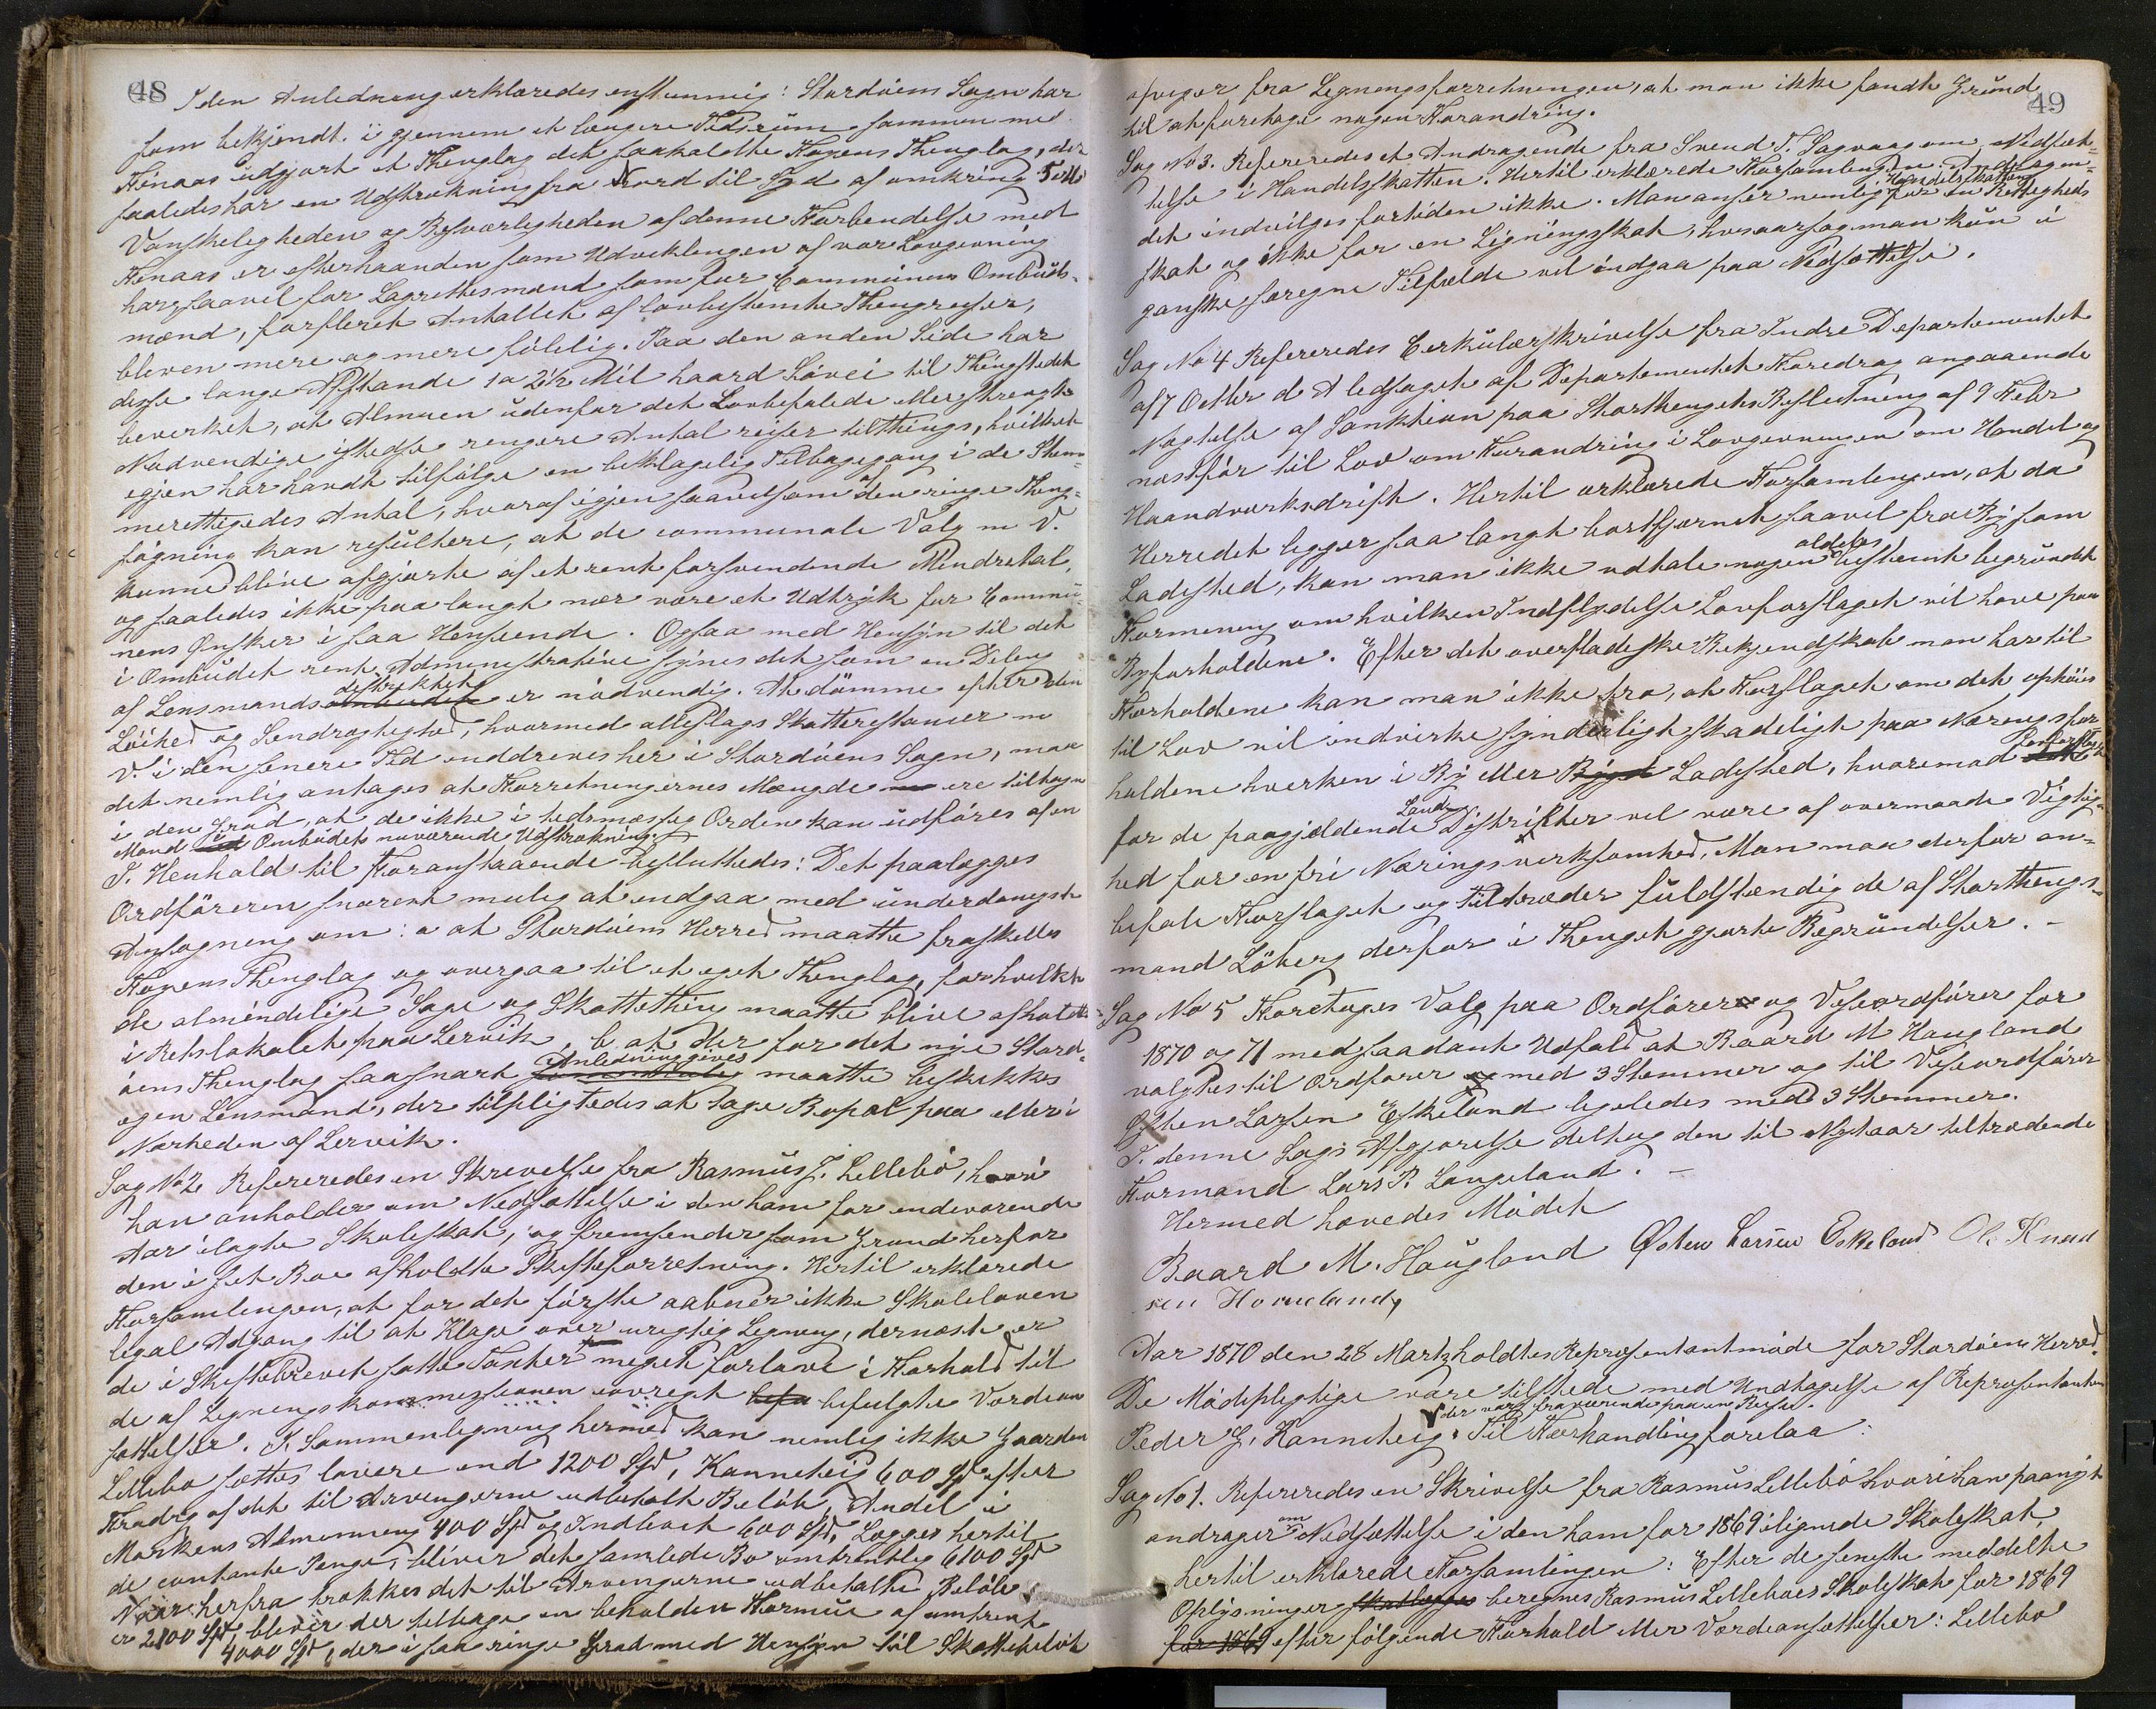 48
I den Anledning erklæredes enstemmig: Stordöens Sogn har
som bekjendt igjennem et længere Tidsrum sammen med
Finaas udgjort et Thinglag det saakaldte Fogens Thinglag, der
saaledes har en Udstrekning fra Nord til Syd af omkring 5 Mil
Vanskeligheden og Besværligheden af denne Forbindelse med
Finaas er efterhaanden som Udviklingen af vor Lovgivning
har, saavel for Lagrettesmænd som for Communens Ombuds-
mænd, forfleret Antallet af lovbestemte Thingreiser,
bleven mere og mere følelig. Paa den anden Side har
disse lange Afstande 1 a 2 1/2 Mil haard Sövei til Thingstedet
bevirket, at Almuen udenfor det Lovbefalede eller strengt
Nødvendige iskedse ringere Antal reiser tilthings, hvilket
igjen har havdt tilfölge en beklagelig Tilbagegang i de Stem-
meretttigedes Antal, hvoraf igjen saavelsom af den ringe Thing-
søgning kan resultere, at de communale Valg m V.
kunne blive afgjorte af et rent forsvindende Mindretal,
og saaledes ikke paa langt nær være et Udtryk for Commu-
nens Ønsker i saa Henseende. Ogsaa med Hensyn til det
i Ombudet rent Administrative synes det som en Deling
af Lensmandsombudet distriktet er nödvendig. At dömme efter den
Löshed og Sendrægtighed, hvormed alleslags Skatterestancer m
V. i den senere Tid inddrives her i Stordöens Sogn, maa
det nemlig antages at Forretningernes Mængde ere tiltagne
i den Grad, at de ikke i tedsmæssig Orden kan udföres af en
Mand ved Ombudets nuværende Udstrækning.
I Henhold til Foranstaaende besluttedes: Det paalægges
Ordföreren snarest mulig at indgaa med underdanigst
Ansøgning om: a at Stordöens Herred maatte fraskilles
Fogens Thinglag og overgaa til et eget Thinglag, for hvilket
de almindelige Sage og Skattething maatte blive afholdte
i Retslokalet paa Lervik, b at der for det nye Stord-
öens Thinglag saasnart Anledning gives maatte beskikkes
egen Lensmand, der tilpligtedes at tage Bopæl paa eller i
Nærheden af Lervik.
Sag No 2 Refereredes en Skrivelse fra Rasmus J. Lillebö, hvori
han anholder om Nedsættelse i den ham for indeværende
Aar ilagte Skoleskat, og fremsender som Grund herfor
den i sit Boe afholdte Skifteforretning. Hertil erklærede
Forsamlingen, at for det förste aabner ikke Skoleloven
legal Adgang til at Klage over urigtig Ligning, dernæst er
de i Skiftebrevet satte Taxter meget forlave i Forhold til
de af Ligningskommissionen iövrigt befa befulgte Værdian
sættelser. I Sammenligning hermed kan nemlig ikke Gaarden
Lillebø sættes lavere end 1200 Spd, Kannekeig 600 Spd efter
Fradrag af det til Arvingerne udbetalt Beløb, Andel i
Markens Almenning 400 Spd og Indboet 600 Spd, Lægges hertil
de contante Penge, bliver det samlede Bo omtrentlig 6100 Spd
Naar herfra trækkes det til Arvingerne udbetalte Beløb
er 2100 Spd, bliver der tilbage en beholden Formue af omtrent
4000 Spd, der i saa ringe Grad med Hensyn til Skattebeløb
49
afviger fra Ligningsforretningen, at man ikke fandt Grund
til at foretage nogen Forandring.
Sag No 3. Refereredes et Andragende fra Svend T. Sagvaag om Nedsæt-
telse i Handelsskatten. Hertil erklærede Forsamlingen Andragen-
det indvilges fortiden ikke. Man anser nemlig Handelsskatten for en Rettigheds
skat og ikke for en Ligningsskat, hvesaarsag man kun i
ganske særegne Tilfælde vil indgaa paa Nedsættelse.
Sag No 4 Refereredes Cerkulærskrivelse fra Indre Departementet
af 7 Octbr d A ledsaget af Departementet Foredrag angaaende
Nægtelse af Sanktion paa Storthingets Beslutning af 9 Febr
næstfør til Lov om Forandring i Lovgivningen om Handel og
Haandværksdrift. Hertil erklærede Forsamlingen, at da
Herredet ligger saa langt bortfjernet saavel fra By som
Ladested, kan man ikke udtale nogen aldeles bestemt begrundet
Formening om hvilken Indflydelse Lovforslaget vil have paa
Byforholdene. Efter det overfladiske Bekjendskab man har til
Forholdene kan man ikke tro, at Forslaget om det ophöies
til Lov vil indvirke synderligt skadeligt paa Næringsfor-
holdene hverken i By eller Bygd Ladested, hvorimod Lovforslaget
for de paagjældende Land Distrikter vil være af overmaade Vigtig-
hed for en fri Nærings virksomhed. Man maa derfor an-
befale Forslaget og tiltræder fuldstændig de af Storthings-
mand Löberg derfor i Thinget gjorte Begrundelser. -
Sag No 5 Foretages Valg paa Ordförer og Viseordförer for
1870 og 71 med saadant Udfald at Baard M Haugland
valgtes til Ordförer med 3 Stemmer og til Viseordfører
Østen Larsen Eskeland ligeledes med 3 Stemmer.
I denne Sags Afgjørelse deltog den til Nytaar tiltrædende
Formand Lars P. Langeland. -
Hermed hævedes Mödet
Baard M. Haugland Østen Larsen Eskeland Ole Knud
sen Horneland
Aar 1870 den 28 Marts holdtes Repræsentantmöde for Stordöens Herred.
De Mødepligtige vare tilstede med Undtagelse af Repræsentanten
Peder G. Kannekeig, der var fraværende paa en Reise. Til Forhandling forelaa:
Sag No 1. Refereredes en Skrivelse fra Rasmus Lillebö hvori han paanyt
andrager om Nedsættelse i den ham for 1869 ilignede Skoleskat,
hertil erklærede Forsamlingen: Efter de seneste meddelte
Oplysninger skatlægges beregnes Rasmus Lilleböes Skoleskat for 1869
for 1869 efter følgende Forhold eller Værdiansættelser: Lillebø